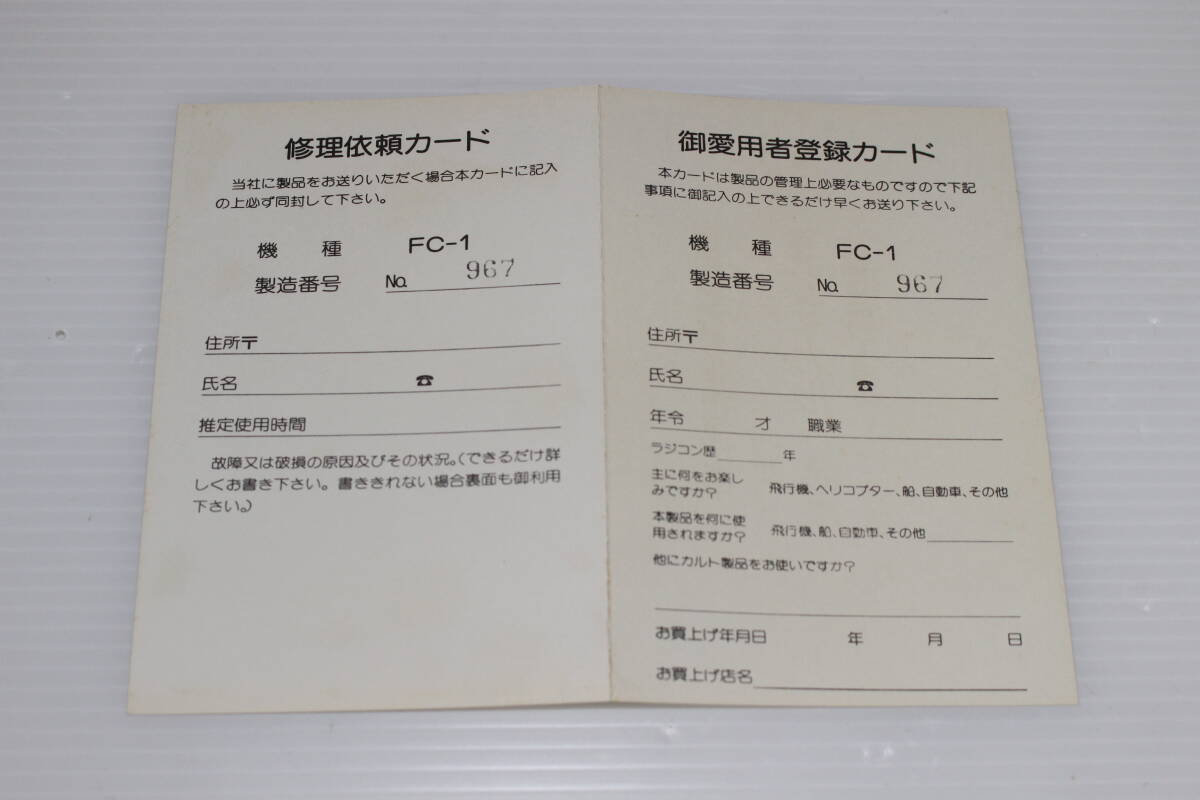 修理依頼カード
当社に製品をお送りいただく場合本カードに記入
の上必ず同封して下さい。
機 種 FC-1
製造番号 No. 967
住所〒
氏名 ☎
推定使用時間
故障又は破損の原因及びその状況。(できるだけ詳
しくお書き下さい。書ききれない場合裏面も御利用
下さい。)
御愛用者登録カード
本カードは製品の管理上必要なものですので下記
事項に御記入の上できるだけ早くお送り下さい。
機 種 FC-1
製造番号 No. 967
住所〒
氏名 ☎
年令 才 職業
ラジコン歴 年
主に何をお楽し
みですか? 飛行機、ヘリコプター、船、自動車、その他
本製品を何に使
用されますか? 飛行機、船、自動車、その他
他にカルト製品をお使いですか?
お買上げ年月日 年 月 日
お買上げ店名